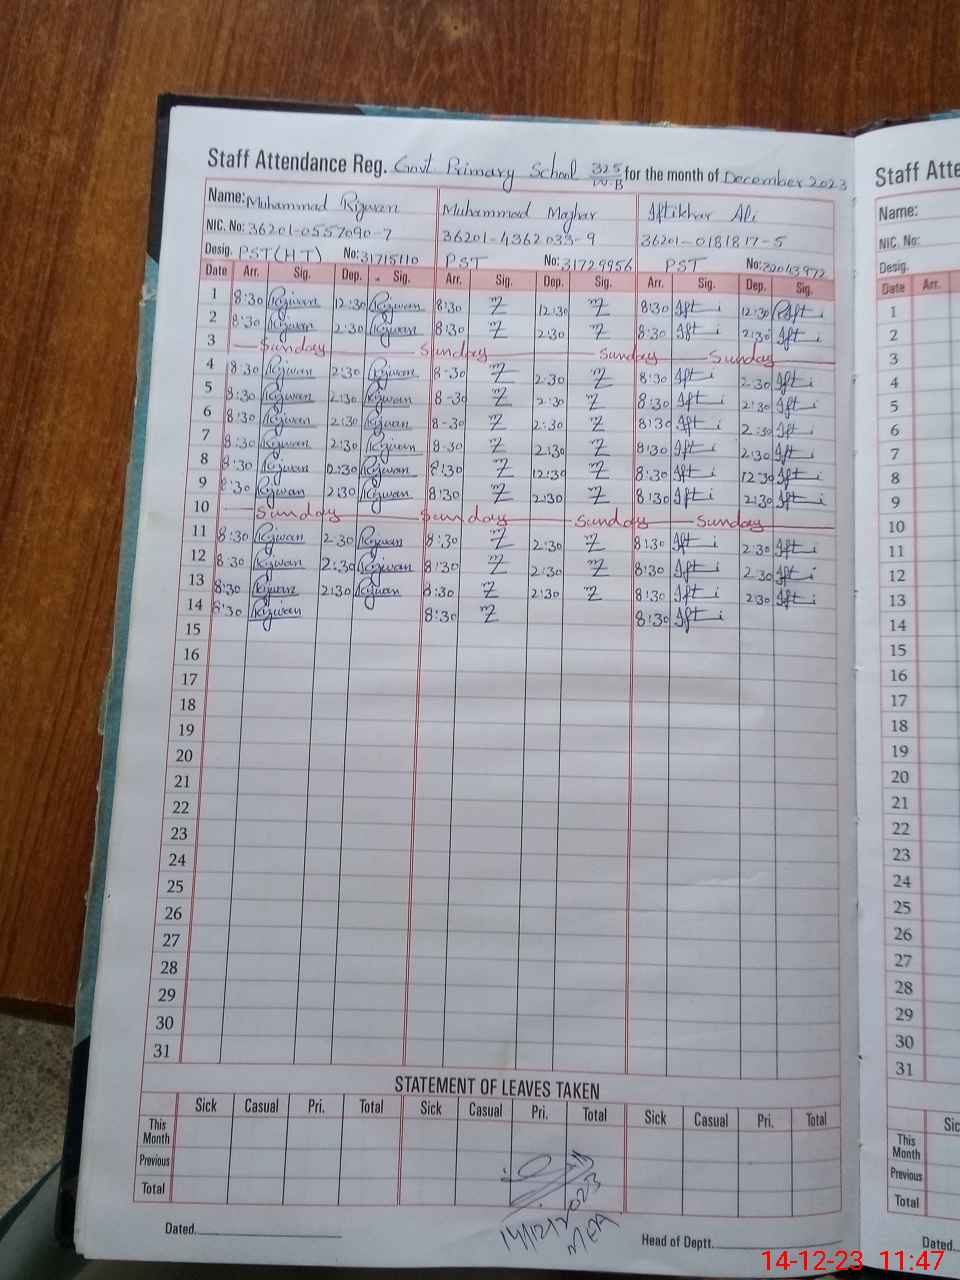 Staff Attendance Reg. Govt Primary School 325/W.B for the month of December 2023
Name: Muhammad Rizwan Muhammad Mazhar Iftikhar Ali
NIC. No: 36201-0557090-7 36201-4362033-9 36201-0181817-5
Desig. PST(H.T) No: 31715110 PST No: 31729956 PST No: 32043972
Date Arr. Sig. Dep. Sig. Arr. Sig. Dep. Sig. Arr. Sig. Dep. Sig.
1 8:30 Rizwan 12:30 Rizwan 8:30 12:30 8:30 Ifti 12:30 Ifti
2 8:30 Rizwan 2:30 Rizwan 8:30 2:30 8:30 Ifti 2:30 Ifti
3 Sunday Sunday Sunday Sunday
4 8:30 Rizwan 2:30 Rizwan 8-30 2:30 8:30 Ifti 2:30 Ifti
5 8:30 Rizwan 2:30 Rizwan 8-30 2:30 8:30 Ifti 2:30 Ifti
6 8:30 Rizwan 2:30 Rizwan 8-30 2:30 8:30 Ifti 2:30 Ifti
7 8:30 Rizwan 2:30 Rizwan 8-30 2:30 8:30 Ifti 2:30 Ifti
8 8:30 Rizwan 12:30 Rizwan 8:30 12:30 8:30 Ifti 12:30 Ifti
9 8:30 Rizwan 2:30 Rizwan 8:30 2:30 8:30 Ifti 2:30 Ifti
10 Sunday Sunday Sunday Sunday
11 8:30 Rizwan 2:30 Rizwan 8:30 2:30 8:30 Ifti 2:30 Ifti
12 8:30 Rizwan 2:30 Rizwan 8:30 2:30 8:30 Ifti 2:30 Ifti
13 8:30 Rizwan 2:30 Rizwan 8:30 2:30 8:30 Ifti 2:30 Ifti
14 8:30 Rizwan 8:30 8:30 Ifti
15
16
17
18
19
20
21
22
23
24
25
26
27
28
29
30
31
STATEMENT OF LEAVES TAKEN
Sick Casual Pri. Total Sick Casual Pri. Total Sick Casual Pri. Total
This Month
Previous
Total
14/12/2023
MEA
Dated. Head of Deptt.
Staff Atte
Name:
NIC. No:
Desig.
Date Arr.
1
2
3
4
5
6
7
8
9
10
11
12
13
14
15
16
17
18
19
20
21
22
23
24
25
26
27
28
29
30
31
Sic
This Month
Previous
Total
Dated.
14-12-23 11:47